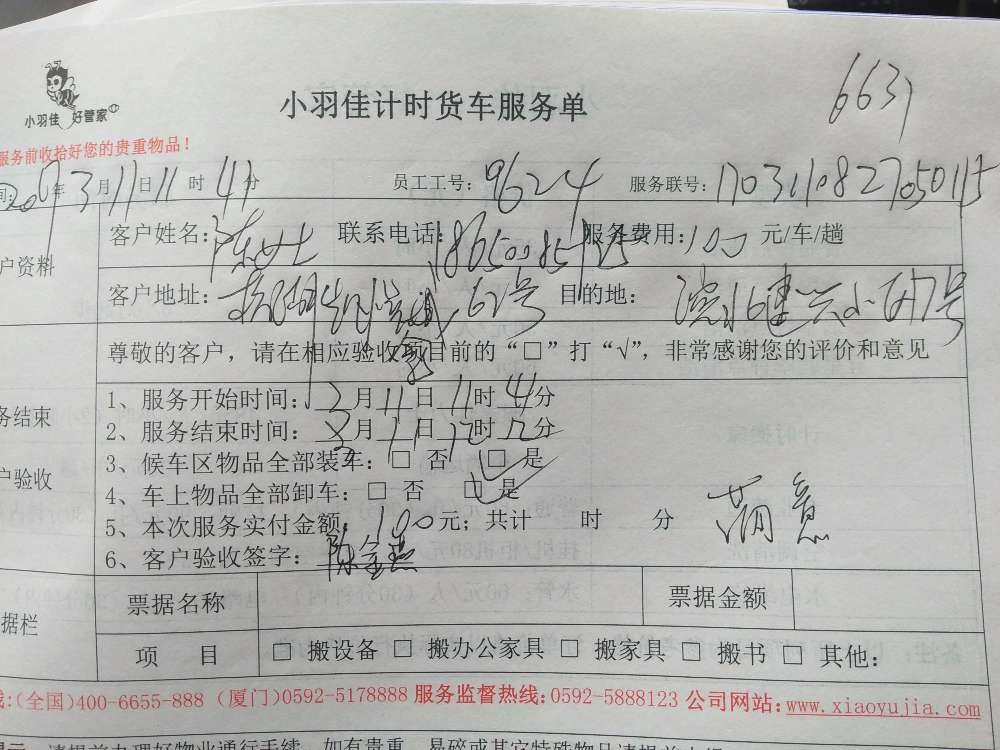 小羽佳 好管家
小羽佳计时货车服务单
服务前收拾好您的贵重物品！
年3月11日11时41分 员工工号：9624 服务联号：
户资料
客户姓名：陈女士 联系电话： 服务费用：100元/车/趟
客户地址： 62号 目的地：
尊敬的客户，请在相应验收项目前的“□”打“√”，非常感谢您的评价和意见
务结束
户验收
1、服务开始时间：3月11日11时41分
2、服务结束时间：3月11日12时12分
3、候车区物品全部装车：□ 否 □ 是
4、车上物品全部卸车：□ 否 □ 是
5、本次服务实付金额：100元；共计 时 分
满意
6、客户验收签字：
据栏
票据名称 票据金额
项 目 □ 搬设备 □ 搬办公家具 □ 搬家具 □ 搬书 □ 其他：
线:(全国)400-6655-888 (厦门)0592-5178888 服务监督热线:0592-5888123 公司网站:www.xiaoyujia.com